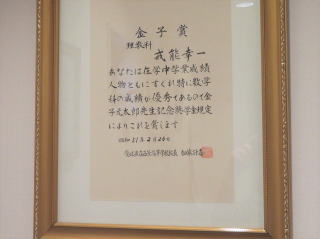 金子賞
理数科
我能幸一
あなたは在学中学業成績
人物ともにすぐれ特に数学
科の成績が優秀であるので金
子元太郎先生記念奨学金規定
によりこれを賞します
昭和51年2月26日
高等学校長